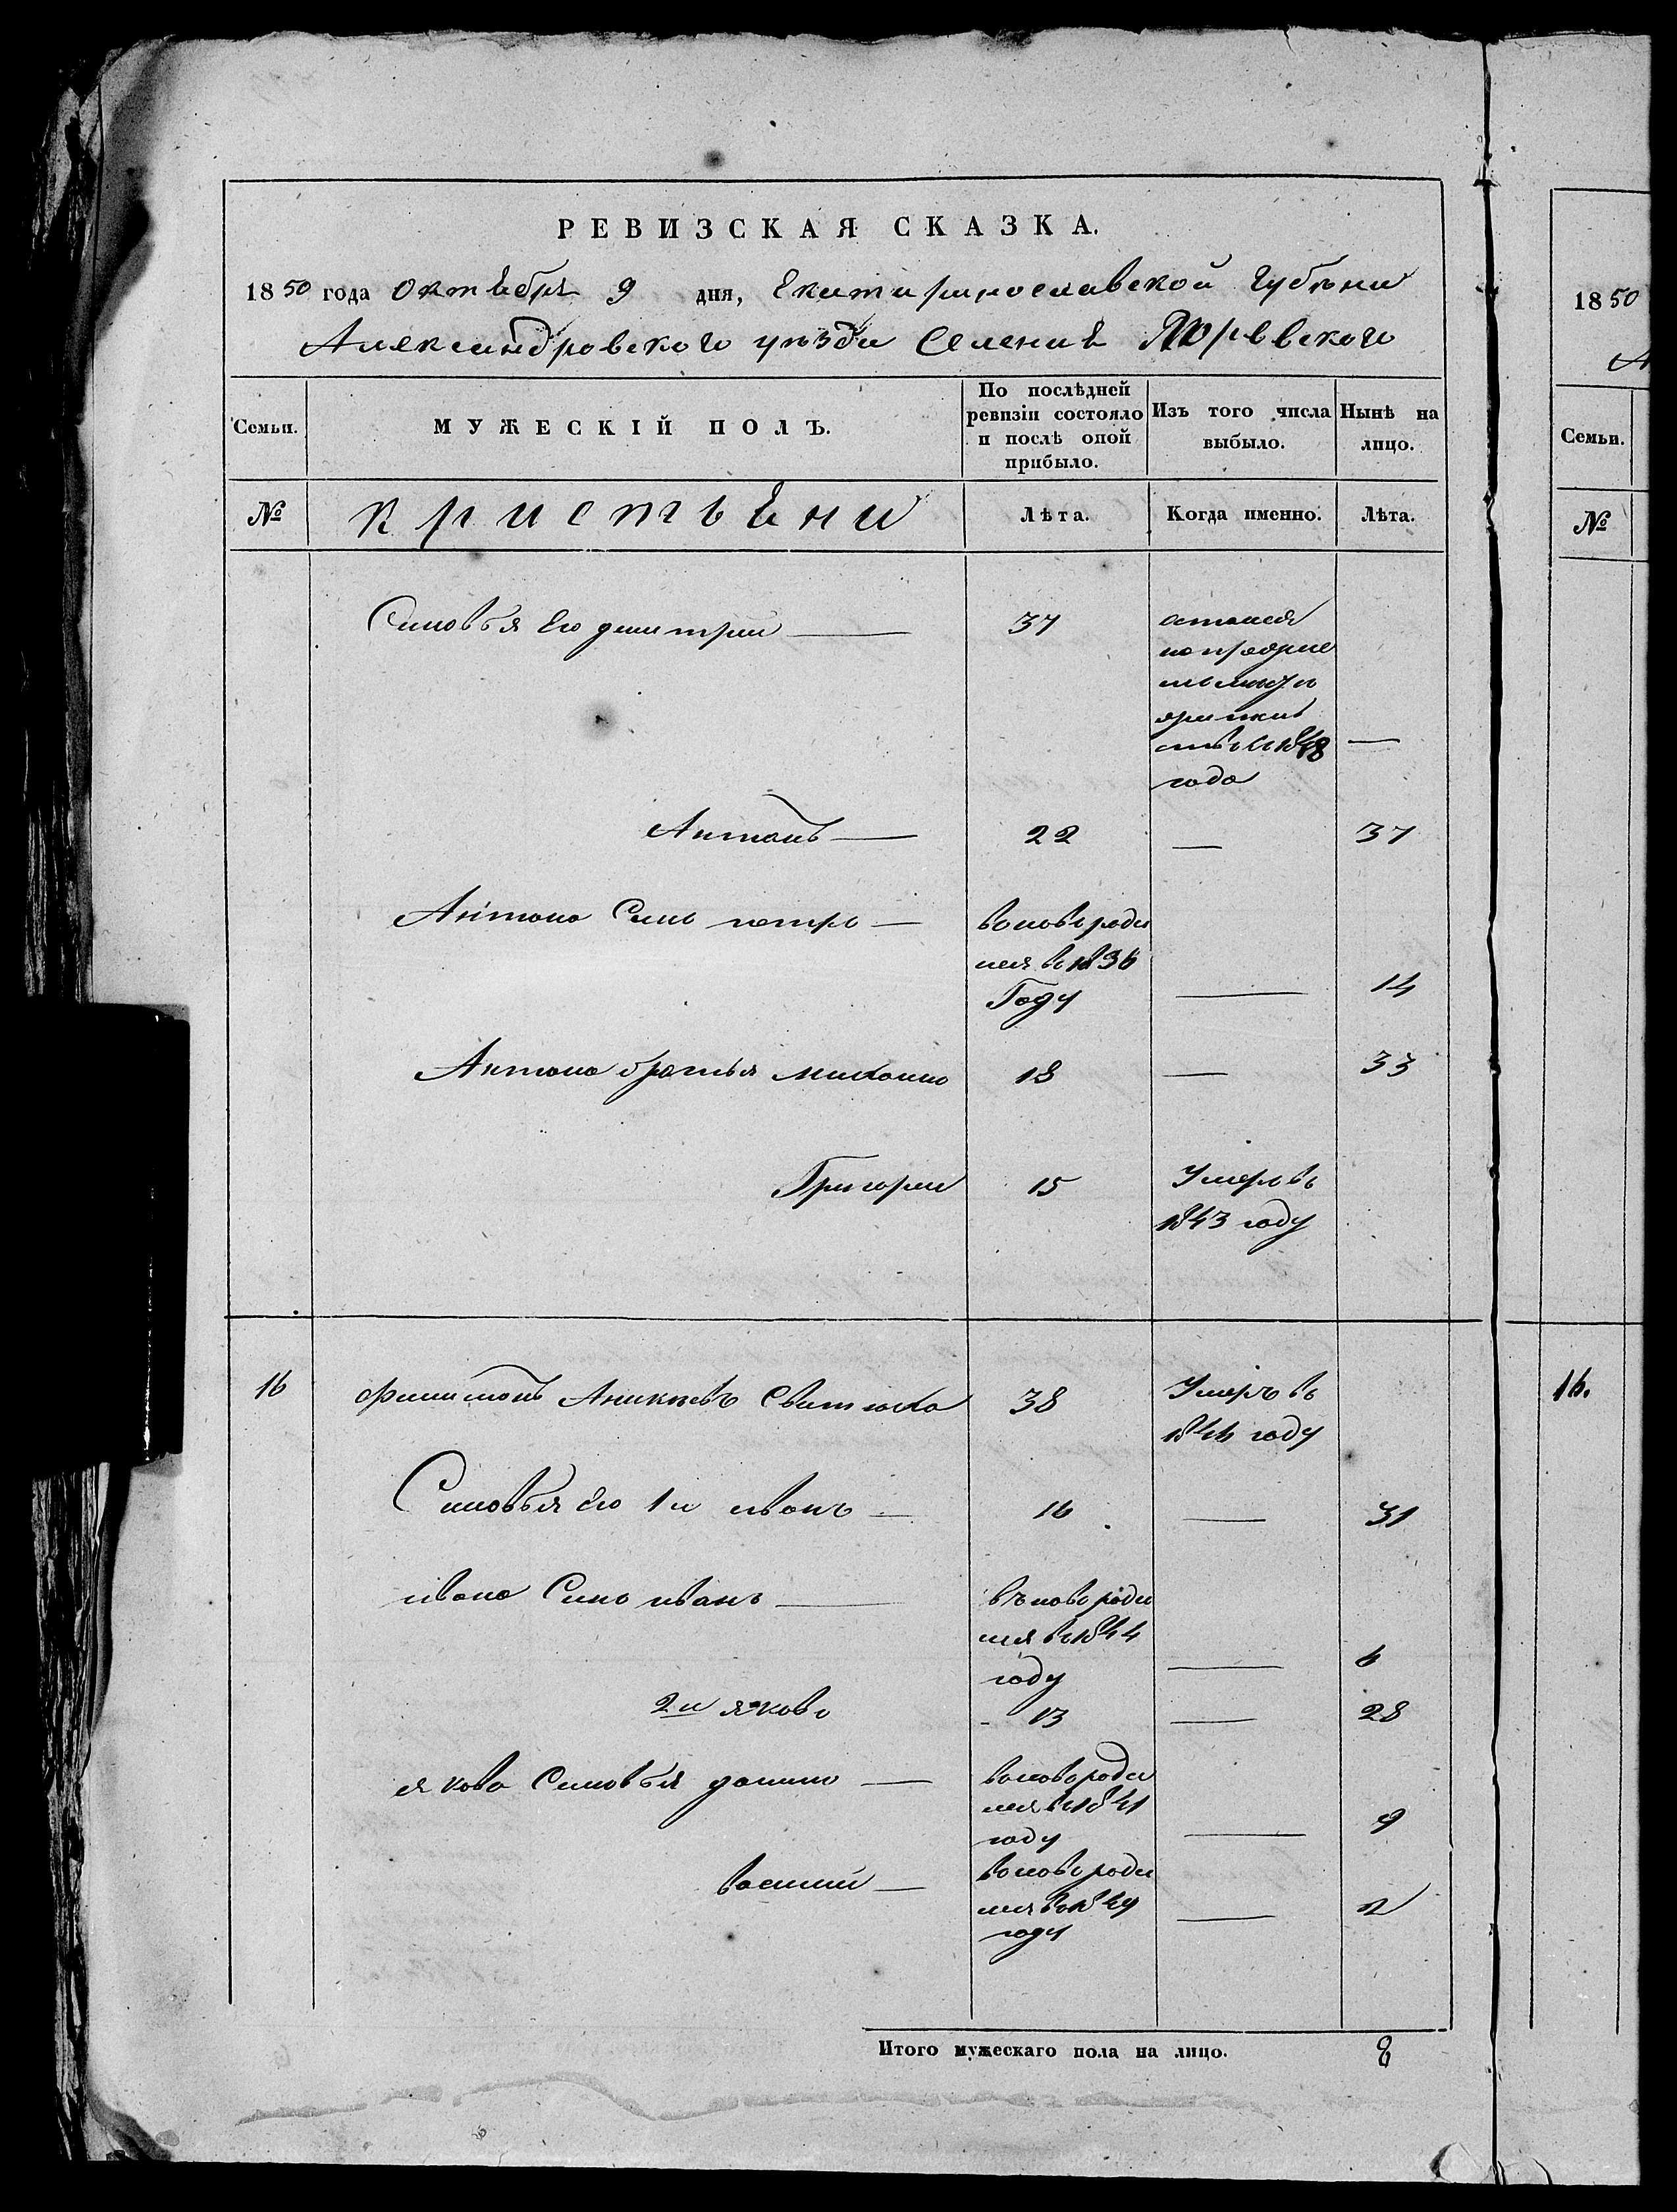 РЕВИЗСКАЯ СКАЗКА.
1850 года Октября 9 дня, Екатиринославской Губѣнии
Александровского уѣзда Селения
Семьи.
МУЖЕСКІЙ ПОЛЪ.
По послѣдней ревизіи состояло и послѣ оной прибыло.
Изъ того числа выбыло.
Нынѣ на лицо.
№
кристьяни
Лѣта.
Когда именно.
Лѣта.
Синовья Его дмитрии — 37
года —
Антонъ — 22 — 37
Антона Синъ петръ — вновь роди
лся въ 1836
Году — 14
Антона братья михаило 18 — 33
Григории 15 Умеръ въ
1843 году
16 Филимонъ Аникѣевъ Свитлюха 38 Умеръ въ
1846 году
Синовья Его 1й иванъ — 16 — 31
ивана Синъ иванъ — въновь роди
лся въ 1844
году — 6
2й яковъ - 13 — 28
якова Синовья данило — вновь роди
лся въ 1841
году — 9
василий — вновь роди
лся въ 1849
году — 2
Итого мужескаго пола на лицо. 8
1850
А
Семьи.
№
16.